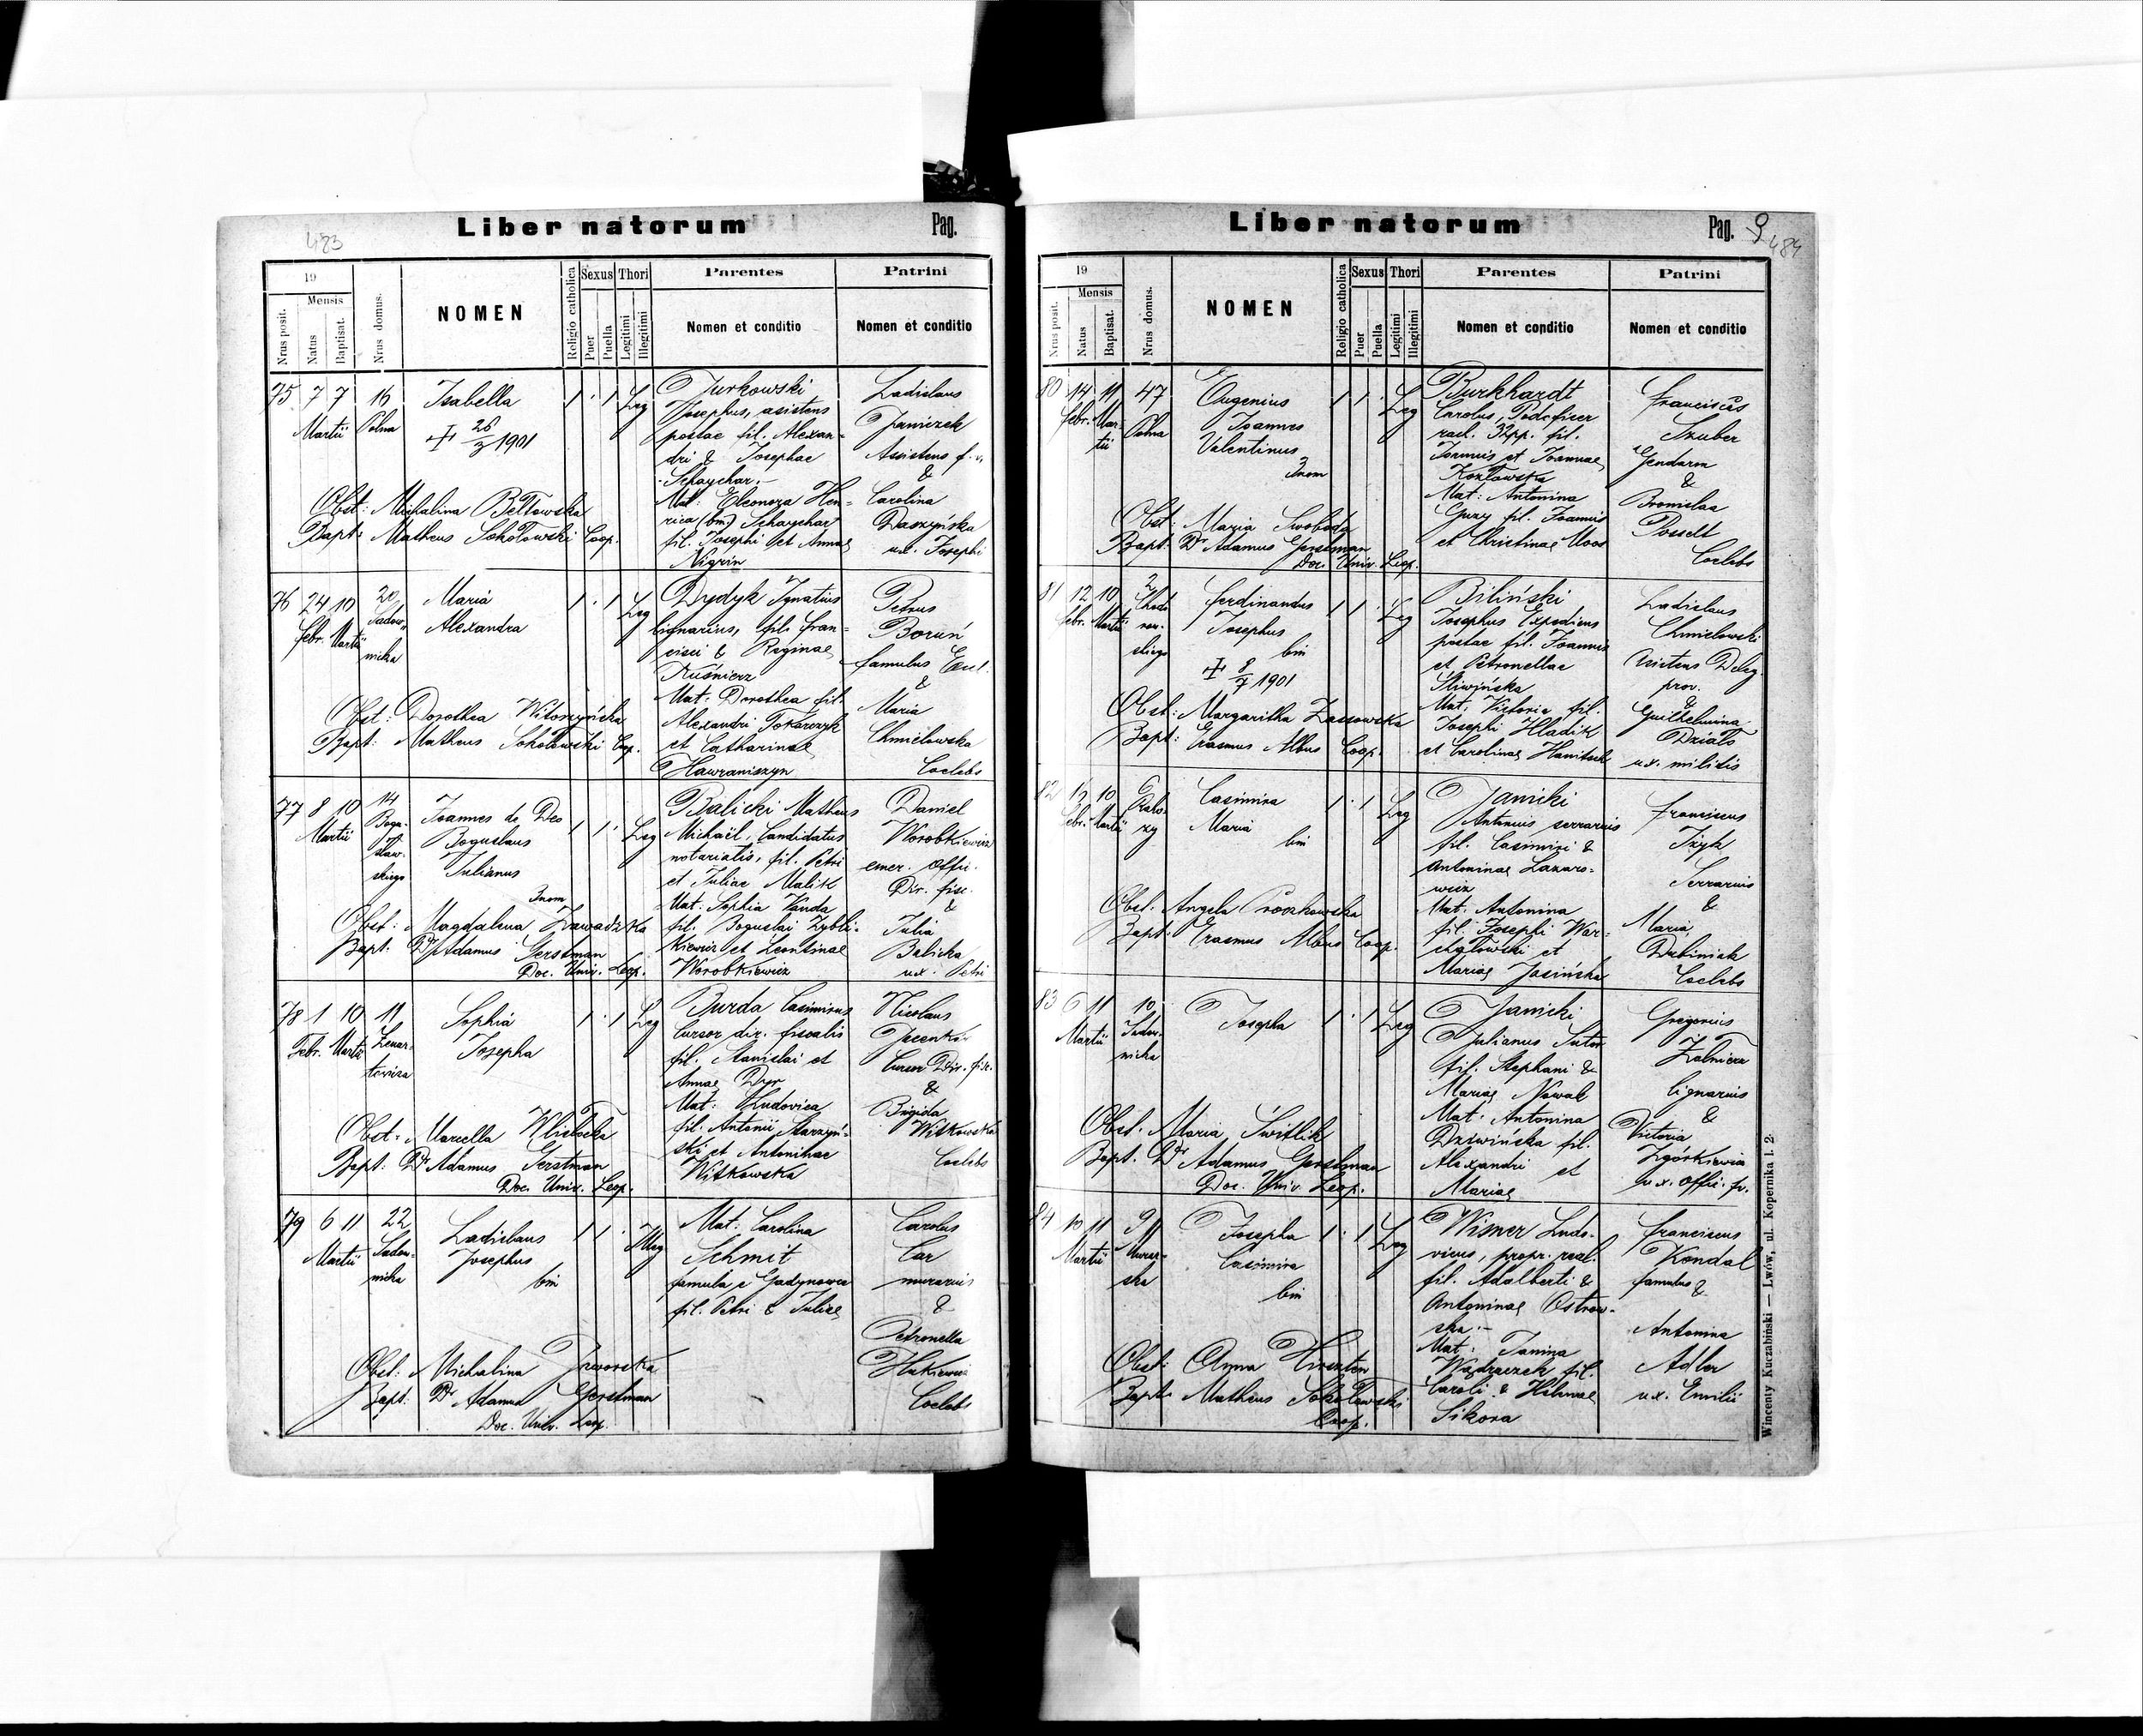 Liber natorum Pag.
483
19
Mensis
Nrus posit.
Natus
Baptisat.
Nrus domus.
NOMEN
Religio catholica
Sexus
Puer
Puella
Thori
Legitimi
Illegitimi
Parentes
Nomen et conditio
Patrini
Nomen et conditio
75 7 7 16 Isabella 1 · 1 Leg
Martii Polna
26/3 1901
Turkowski
Josephus, asistens
postae fil. Alexan-
dri & Josephae
Schaychar.-
Mat: Eleonora Hen-
rica (bm) Schaychar
fil. Josephi et Annae
Nigrin
Ladislaus
Janiczek
Assistens
&
Carolina
Daszyńska
ux. Josephi
Obst: Michalina Bełtowska
Bapt: Matheus Sokołowski Coop.
76 24 10 20 Maria 1 · 1 Leg
Febr. Martii Sadow-
nicka
Alexandra
Dydyk Ignatius
lignarius, fil. Fran-
cisci & Reginae
Kuśnierz
Mat. Dorothea fil.
Alexandri Tokarczyk
et Catharinae
Hawraniszyn
Petrus
Boruń
famulus
&
Maria
Chmielowska
Coelebs
Obst: Dorothea Witoszyńska
Bapt: Matheus Sokołowski Coop.
77 8 10 14 Joannes de Deo 1 1 · Leg
Martii Bogu-
sław-
skiego
Boguslaus
Julianus
3nom
Balicki Matheus
Michaël, Candidatus
notarialis, fil. Petri
et Juliae Malik
Mat: Sophia Vanda
fil. Boguslai Zybli-
kiewicz et Leontinae
Worobkiewicz
Daniel
Worobkiewicz
emer. Offic.
Dir. fisc.
&
Julia
Balicka
ux. Petri
Obst: Magdalena Zawadzka
Bapt: Dr Adamus Gerstman
Doc. Univ. Leop.
78 1 10 11 Sophia 1 · 1 Leg
Febr. Martii
Josepha
Burda Casimirus
Cursor dir. fiscalis
fil. Stanislai et
Annae Dyr
Mat: Ludovica
fil. Antonii Starzyń-
ski et Antoninae
Witkowska
Nicolaus
Cursor Dir. fisc.
&
Brigida
Witkowska
Coelebs
Obst: Marcella
Bapt: Dr Adamus Gerstman
Doc. Univ. Leop.
79 6 11 22 Ladislaus 1 1 · Illeg
Martii Sadow-
nicka
Josephus
bin
Mat: Carolina
Schmit
famula e Gadynowce
fil. Petri & Juliae
Carolus
Car
murarius
&
Petronella
Coelebs
Obst: Michalina
Bapt: Dr Adamus Gerstman
Doc. Univ. Leop.
Liber natorum Pag. 9
484
19
Mensis
Nrus posit.
Natus
Baptisat.
Nrus domus.
NOMEN
Religio catholica
Sexus
Puer
Puella
Thori
Legitimi
Illegitimi
Parentes
Nomen et conditio
Patrini
Nomen et conditio
80 14 11 47 Eugenius 1 1 · Leg
Febr. Mar-
tii Polna
Joannes
Valentinus
3nom
Burkhardt
Carolus,
fil.
Joannis et Joannae
Kozłowska
Mat: Antonina
Guzy fil. Joannis
et Christinae Moos
Franciscus
Szuber
Gendarm
&
Bronislaa
Posselt
Coelebs
Obst: Maria Swoboda
Bapt: Dr Adamus Gerstman
Doc. Univ. Leop.
81 12 10 2 Ferdinandus 1 1 · Leg
Febr. Martii Chodo-
row-
skiego
Josephus
bin
8/7 1901
Biliński
Josephus Expediens
postae fil. Joannis
et Petronellae
Śliwińska
Mat. Victoria fil.
Josephi Hladik
et Carolinae Hanitsch
Ladislaus
Chmielowski
Deleg.
prov.
&
Guilhelmina
Działo
ux. militis
Obst: Margaritha Zassowska
Bapt: Erasmus Albus Coop.
82 13 10 6 Casimira 1 · 1 Leg
Febr. Martii
Maria
bin
Janicki
Antonius serrarius
fil. Casimiri &
Antoninae Lazaro-
wicz
Mat. Antonina
fil. Josephi War-
chałowski et
Mariae Jasińska
Franciscus
Serrarius
&
Maria
Dubiniak
Coelebs
Obst. Angela
Bapt: Erasmus Albus Coop.
83 6 11 10 Josepha 1 · 1 Leg
Martii Sadow-
nicka
Janicki
Julianus Sutor
fil. Stephani &
Mariae Nowak
Mat. Antonina
fil.
Alexandri et
Mariae
Gregorius
Żołnierz
lignarius
&
Victoria
ux. Offic. pr.
Obst. Maria Świtlik
Bapt. Dr Adamus Gerstman
Doc. Univ. Leop.
84 10 11 9 Josepha 1 · 1 Leg
Martii Murar-
ska
Casimira
bin
Wisner Ludo-
vicus, propr. real.
fil. Adalberti &
Antoninae Ostrow-
ska.-
Mat: Janina
Wądraczek fil.
Caroli & Hilmae
Sikora
Franciscus
Kondal
famulus &
Antonina
Adler
ux. Emilii
Obst: Anna
Bapt: Matheus Sokołowski
Coop.
Wincenty Kuczabiński — Lwów, ul. Kopernika l. 2.